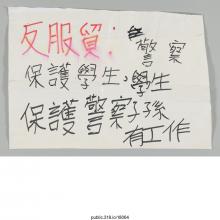 反服貿：警察
保護學生，學生
保護警察子孫
有工作
public.318.io/18064